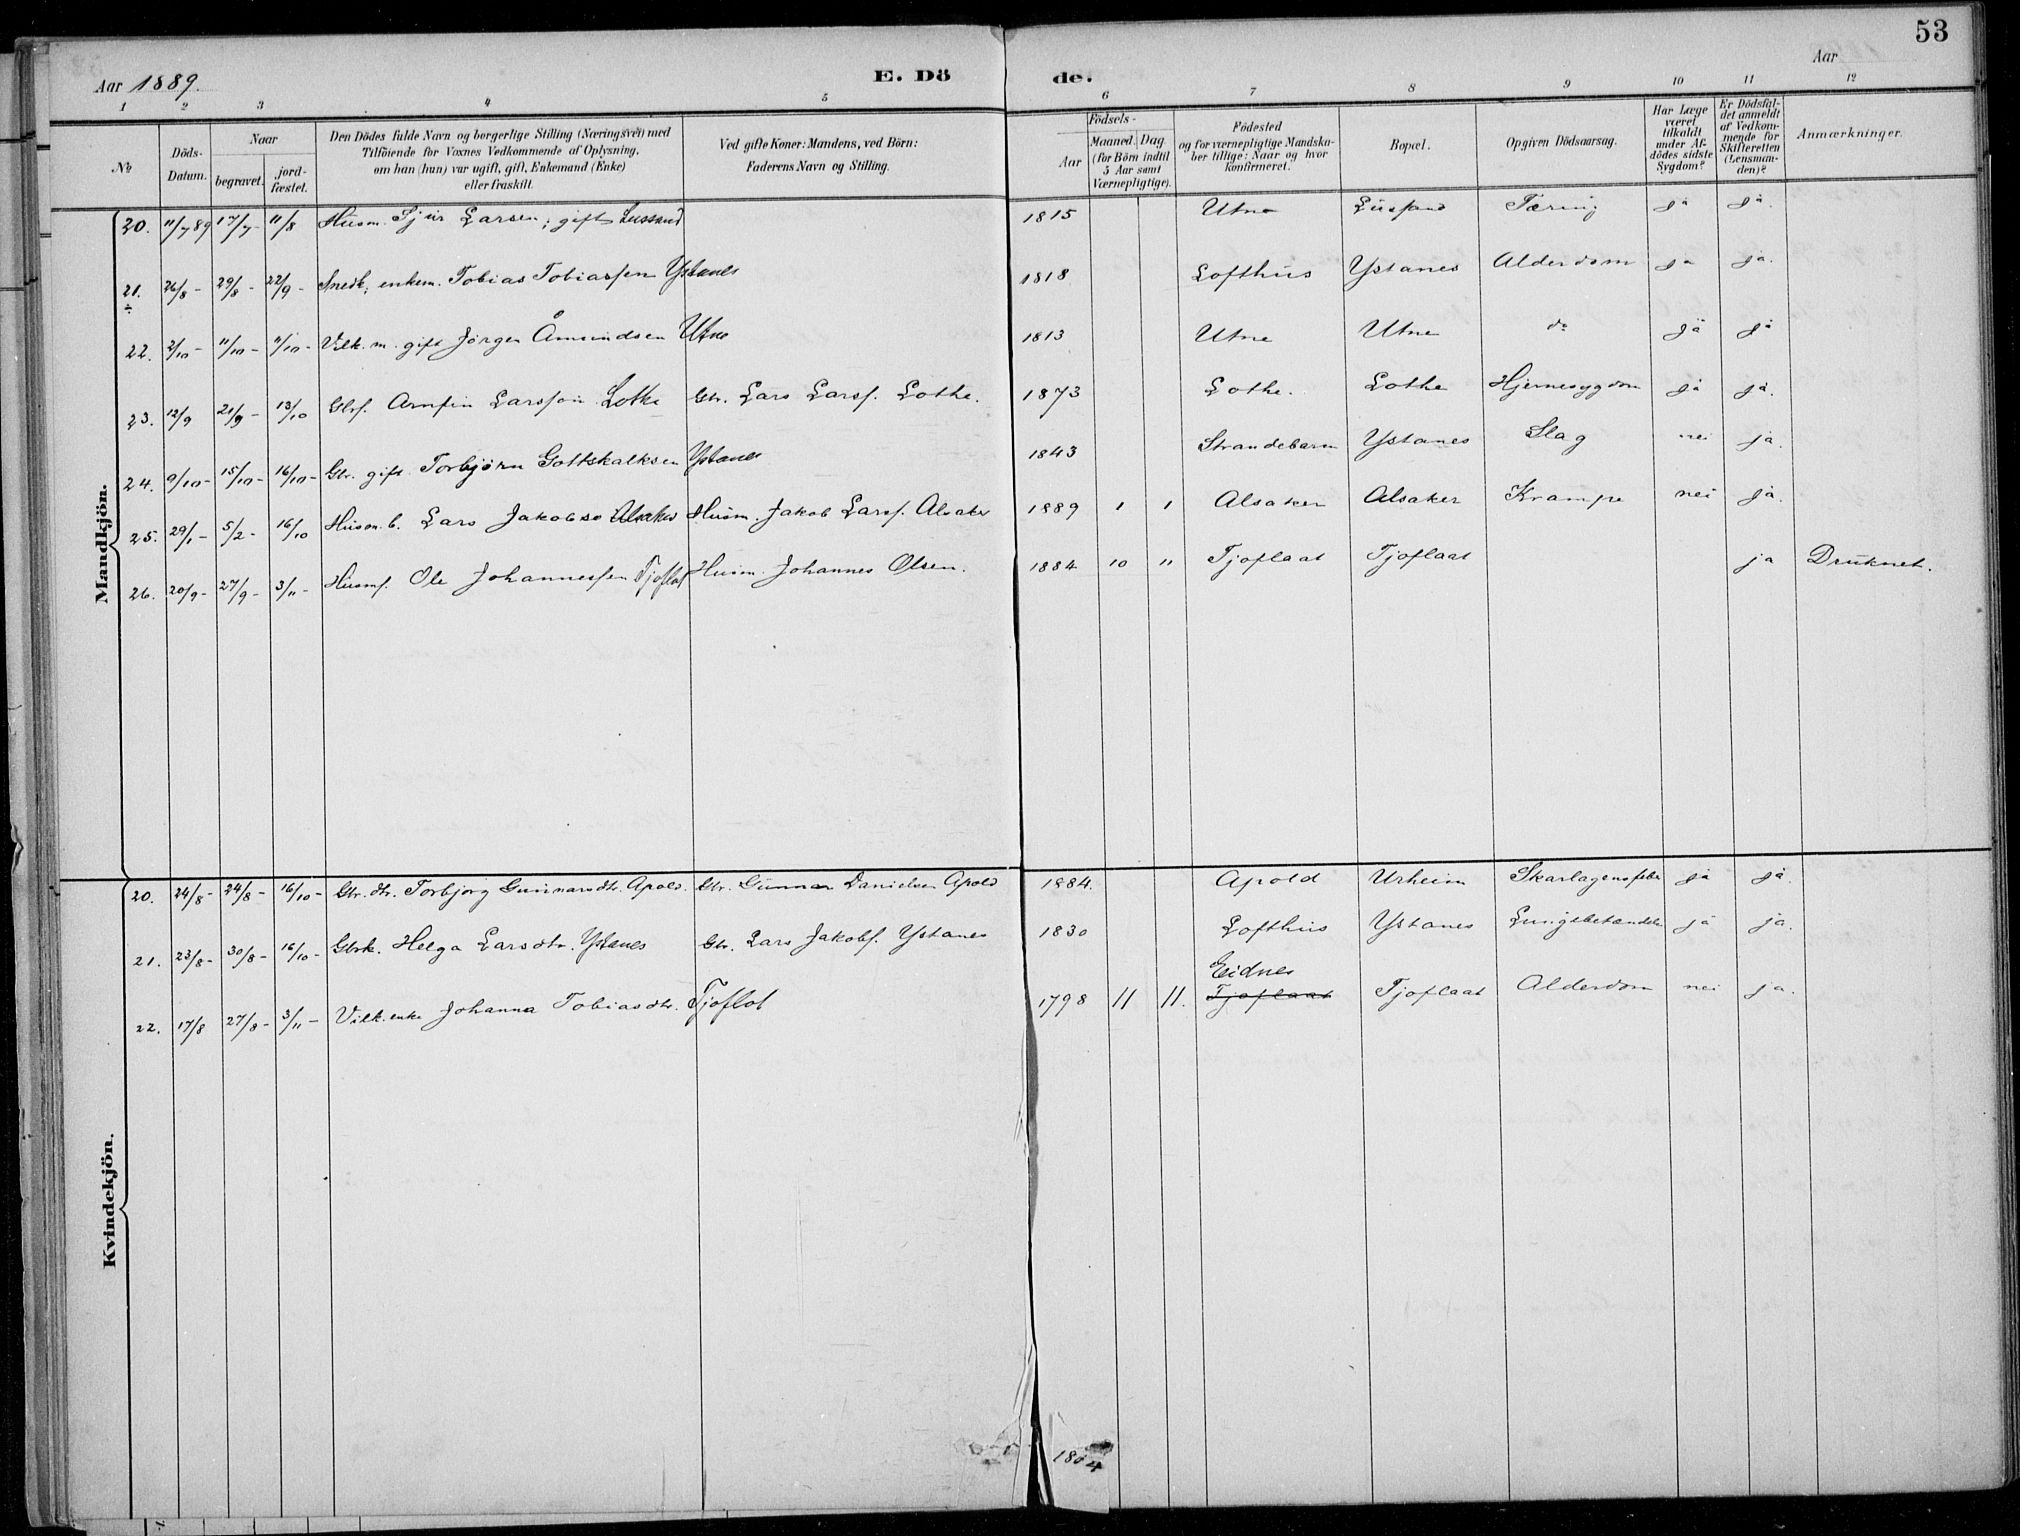 53
Aar 1889.
E. Dö de.
Aar
1 2 3 4 5 6 7 8 9 10 11 12
No
Döds-Datum.
Naar
begravet.
jord-fæstet.
Den Dödes fulde Navn og borgerlige Stilling (Næringsvei) med
Tilföiende for Voxnes Vedkommende af Oplysning,
om han (hun) var ugift, gift, Enkemand (Enke)
eller fraskilt.
Ved gifte Koner: Mandens, ved Börn:
Faderens Navn og Stilling.
Födsels-
Aar
Maaned. Dag
(for Börn indtil
5 Aar samt
Værnepligtige).
Födested
og for værnepligtige Mandska-
ber tillige: Naar og hvor
konfirmeret.
Bopæl.
Opgiven Dödsaarsag.
Har Læge
været
tilkaldt
under Af-
dödes sidste
Sygdom?
Er Dödsfal-
det anmeldt
af Vedkom-
mende for
Skifteretten
(Lensman-
den)?
Anmærkninger.
Mandkjön.
20. 11/7 89 17/7- 11/8 Husm. Sjur Larsen, gift Lussand 1815 Utne Lussand Tæring ja ja.
21. 26/8- 29/8- 22/9- Snedk. enkem. Tobias Tobiassen Ystanes 1818 Lofthus Ystanes Alderdom ja ja.
22. 2/10- 11/10- 11/10- Vilk. m. gift Jörgen Åmundsen Utne 1813 Utne Utne do ja ja
23. 12/9 21/9- 13/10 Gbrs. Arnfin Larsson Lothe Gbr. Lars Larss. Lothe. 1873 Lothe. Lothe Hjernesygdom ja ja.
24. 9/10- 15/10- 16/10- Gbr. gift Torbjörn Gottskalksen Ystanes 1843 Strandebarm Ystanes Slag nei ja.
25. 29/1- 5/2- 16/10 Husm. b. Lars Jakobss Alsaker Husm. Jakob Larss. Alsaker 1889 1 1 Alsaker Alsaker Krampe nei ja.
26. 20/9- 27/9- 3/11- Husms. Ole Johannessen Tjoflot Husm. Johannes Olsen. 1884 10 11 Tjoflaat Tjoflaat ja Druknet.
Kvindekjön.
20. 24/8- 24/8- 16/10- Gbr. dtr. Torbjörg Gunnarsdtr. Apold. Gbr. Gunnar Danielsen Apold 1884. Apold Urheim Skarlagensfeber ja ja.
21. 23/8- 30/8- 16/10- Gbrk. Helga Larsdtr. Ystanes Gbr. Lars Jakobs. Ystanes 1830 Lofthus Ystanes Lungebetændelse ja ja.
Eidnes
22. 17/8 27/8- 3/11- Vilk. enke Johanna Tobiasdtr. Tjoflot 1798 11 11. Tjoflaat Tjoflaat Alderdom nei ja.